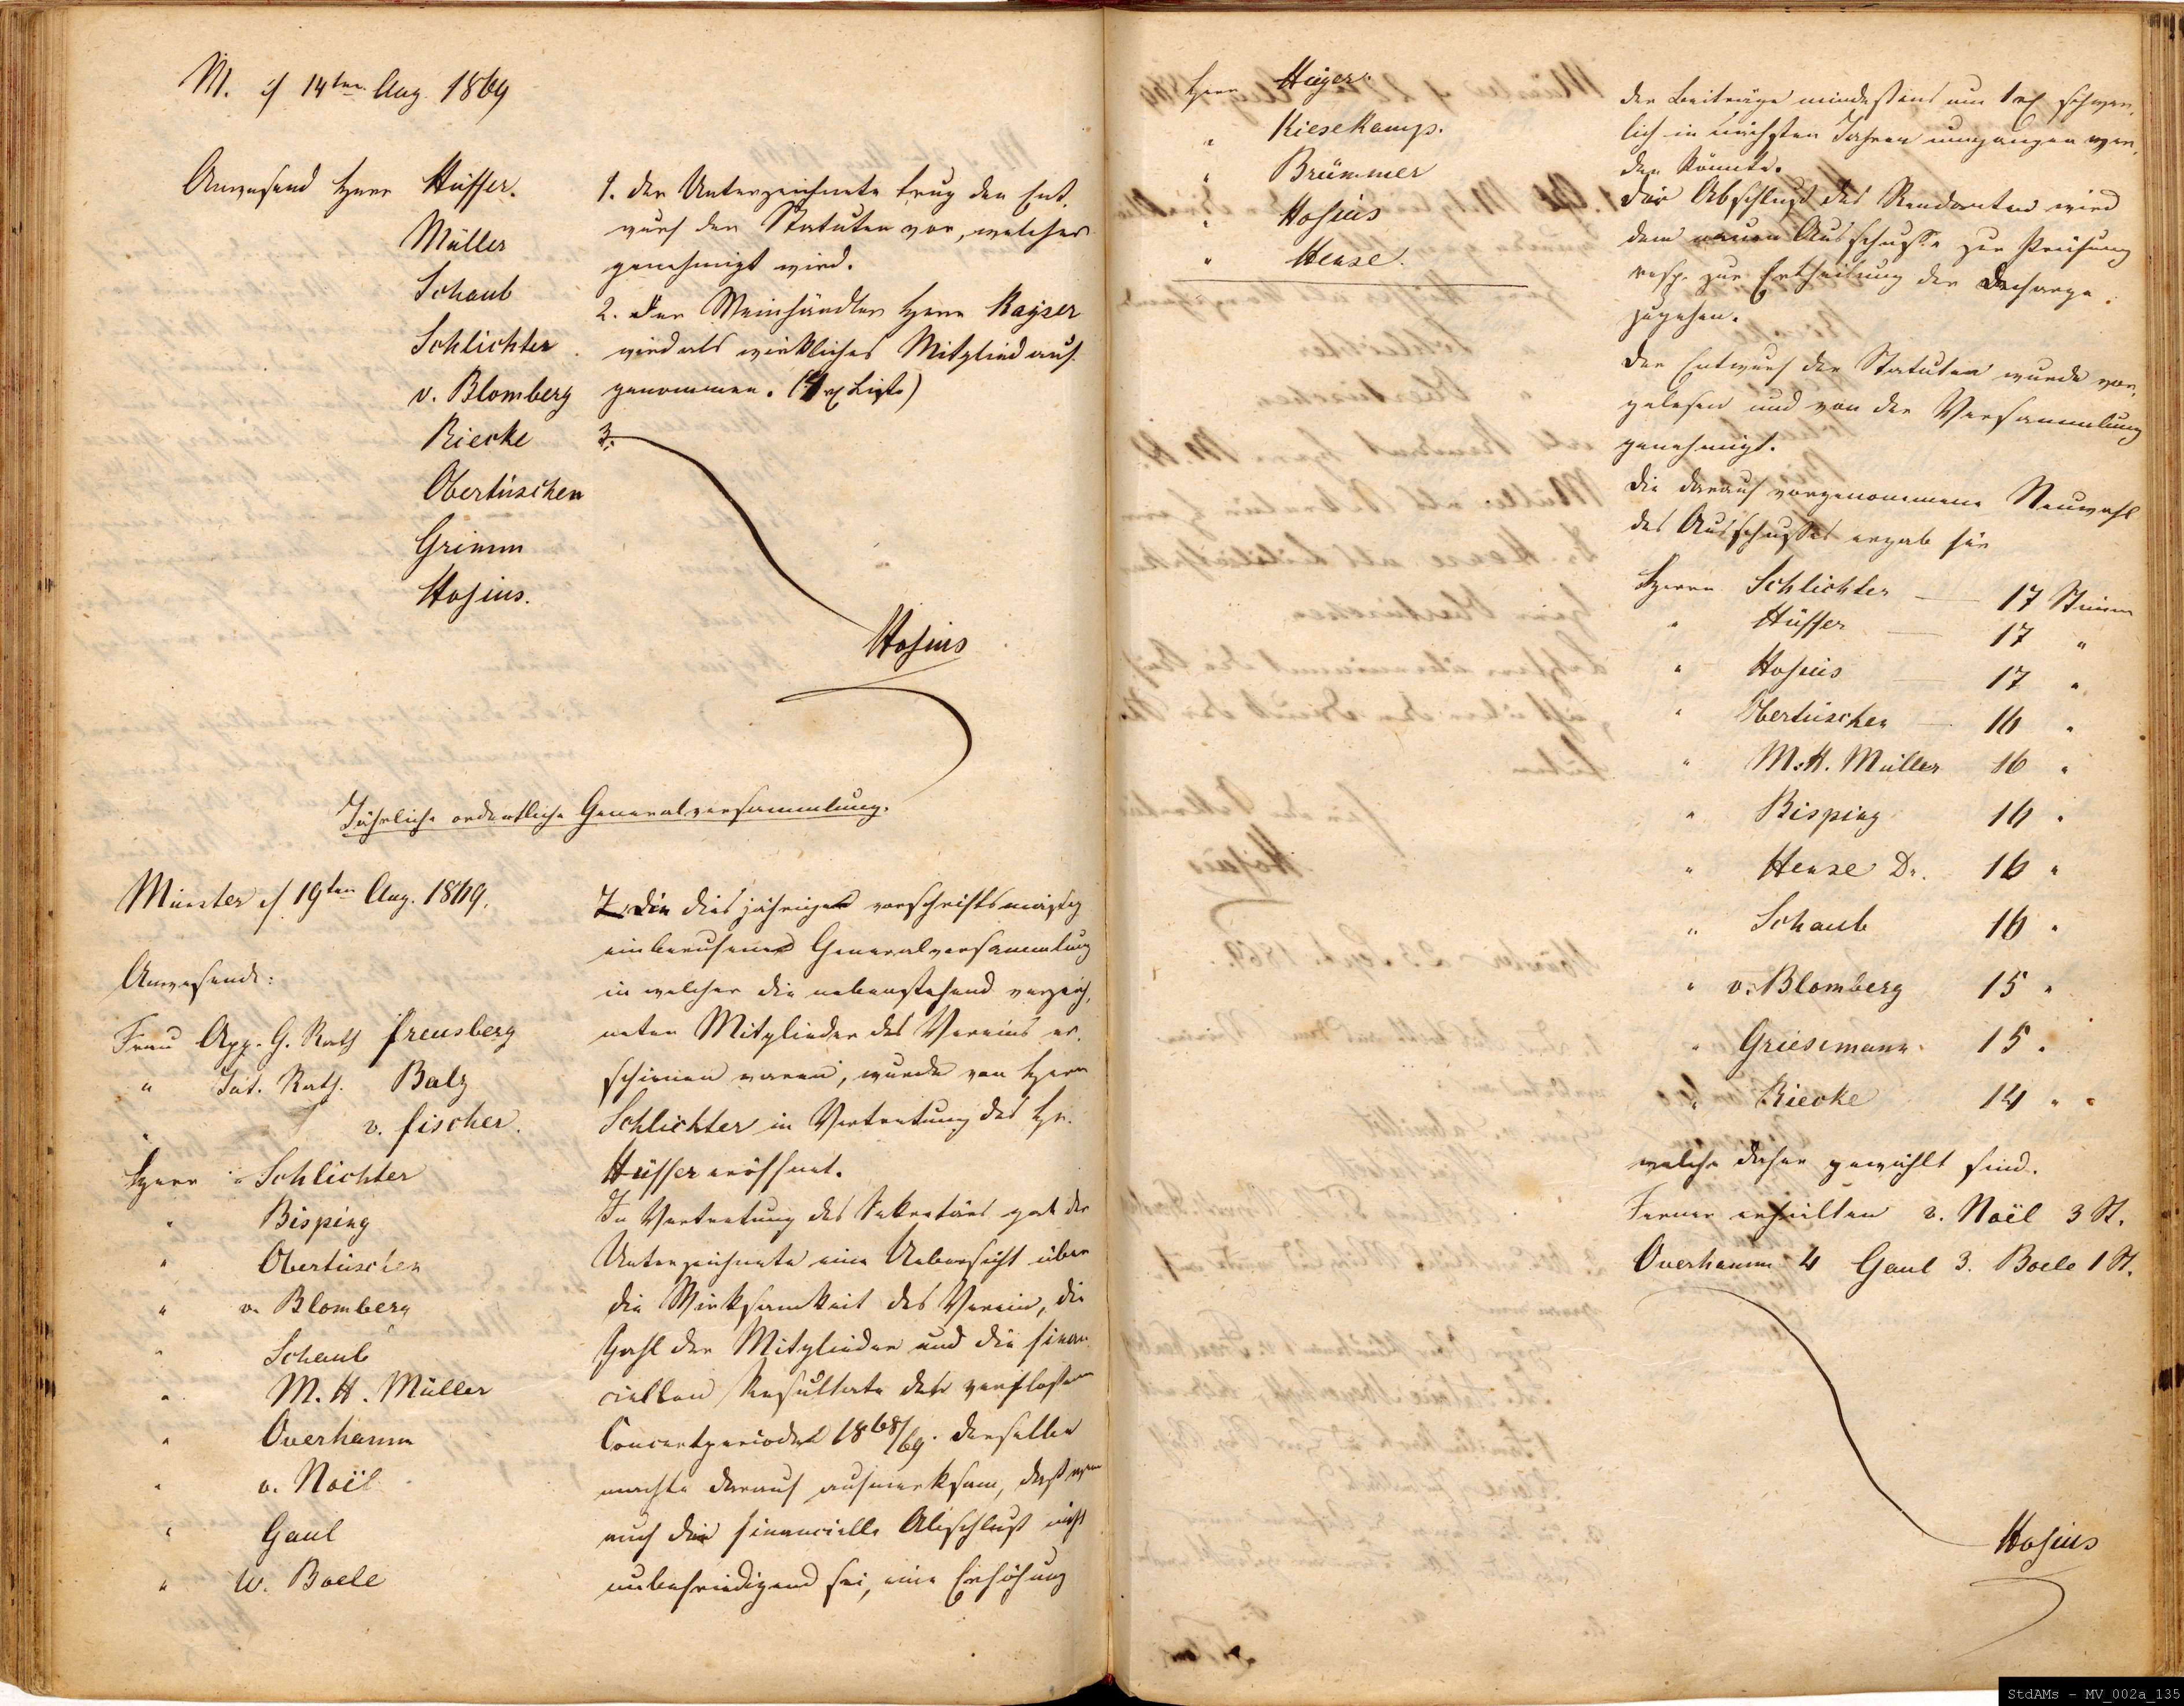 M. d 14ten Aug. 1869
Anwesend Herr Hüffer.
Müller
Schaub
Schlichter
v. Blomberg
Riecke
Obertüschen
Grimm
Hosius.
1. der Unterzeichnete trug den Ent-
wurf der Statuten vor, welcher
genehmigt wird.
2. der Weinhändler Herr Kayser
wird als wirkliches Mitglied auf-
genommen. (4 Liste)
3.
Hosius
Jährliche ordentliche Generalversammlung.
Münster d 19ten Aug. 1869.
Anwesende:
Frau App. G. Rath Freusberg
" Int. Rath. Balz
" v. Fischer.
Herr Schlichter
" Bisping
" Obertüschen
" v. Blomberg
" Schaub
" M. H. Müller
" Overhamm
" v. Noël
" Gaul
" W. Boele
die dies jährige vorschriftsmäßig
einberufene Generalversammlung
in welcher die nebenstehend verzeich-
neten Mitglieder des Vereins er-
schienen waren, wurde von Herrn
Schlichter in Vertretung des Hr.
Hüffer eröffnet.
In Vertretung des Sekretärs gab der
Unterzeichnete eine Uebersicht über
die Wirksamkeit des Verein, die
Zahl der Mitglieder und die finan-
ciellen Resultate der verflossenen
Concertperiode 1868/69. derselbe
machte darauf aufmerksam, daß wenn
auch der financielle Abschluß nicht
unbefriedigend sei, eine Erhöhung
Herr Huyer.
" Kiesekamp.
" Brümmer
" Hosius
" Hense.
der Beiträge mindestens um 1 schwer-
lich in nächsten Jahren umgangen wer-
den könnte.
Der Abschluß des Rendanten wird
dem neuen Ausschusse zur Prüfung
resp. zur Ertheilung der Decharge
zugehen.
Der Entwurf der Statuten wurde vor-
gelesen und von der Versammlung
genehmigt.
Die darauf vorgenommene Neuwahl
des Ausschusses ergab für
Herrn Schlichter — 17 Stimm
" Hüffer — 17 "
" Hosius — 17 "
" Obertüschen — 16 "
" M. H. Müller 16 "
" Bisping 16 "
" Hense Dr. 16 "
" Schaub 16 "
" v. Blomberg 15 "
" Griesemann 15 "
" Riecke 14 "
welche daher gewählt sind.
Ferner erhielten v. Noël 3 St.
Overhamm 4 Gaul 3. Boele 1 St.
Hosius
StdAMs - MV_002a_135